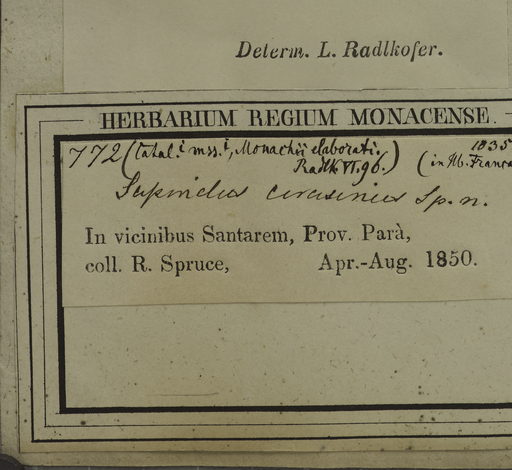 Determ. L. Radlkofer.
HERBARIUM REGIUM MONACENSE
772 (Catal.i mss.i, Monachii elaborati. 1835
Radlk VI.96.) (in Hb. Franca
Sapindus cerasinus Sp. n.
In vicinibus Santarem, Prov. Parà,
coll. R. Spruce, Apr.-Aug. 1850.